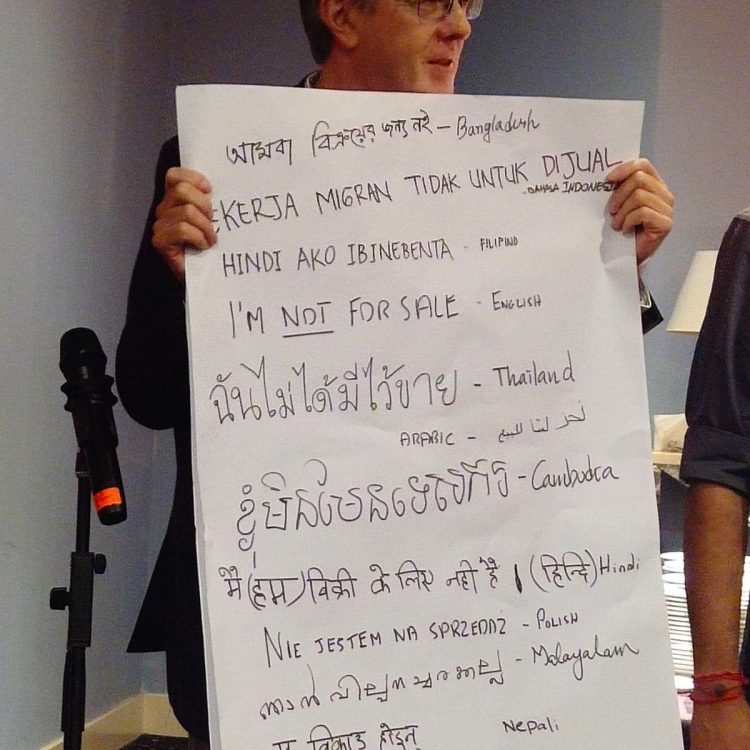 আমরা বিক্রয়ের জন্য নই – Bangladesh
EKERJA MIGRAN TIDAK UNTUK DIJUAL
- BAHASA INDONESIA
HINDI AKO IBINEBENTA - FILIPINO
I'M NOT FOR SALE - ENGLISH
ฉันไม่ได้มีไว้ขาย - Thailand
ARABIC - للبيع
ខ្ញុំមិនមែន - Cambodia
मै (हम) बिक्री के लिए नही है । (हिन्दि) Hindi
NIE JESTEM NA SPRZEDDŻ - POLISH
ഞാൻ - Malayalam
म बिकाउ होइन् Nepali